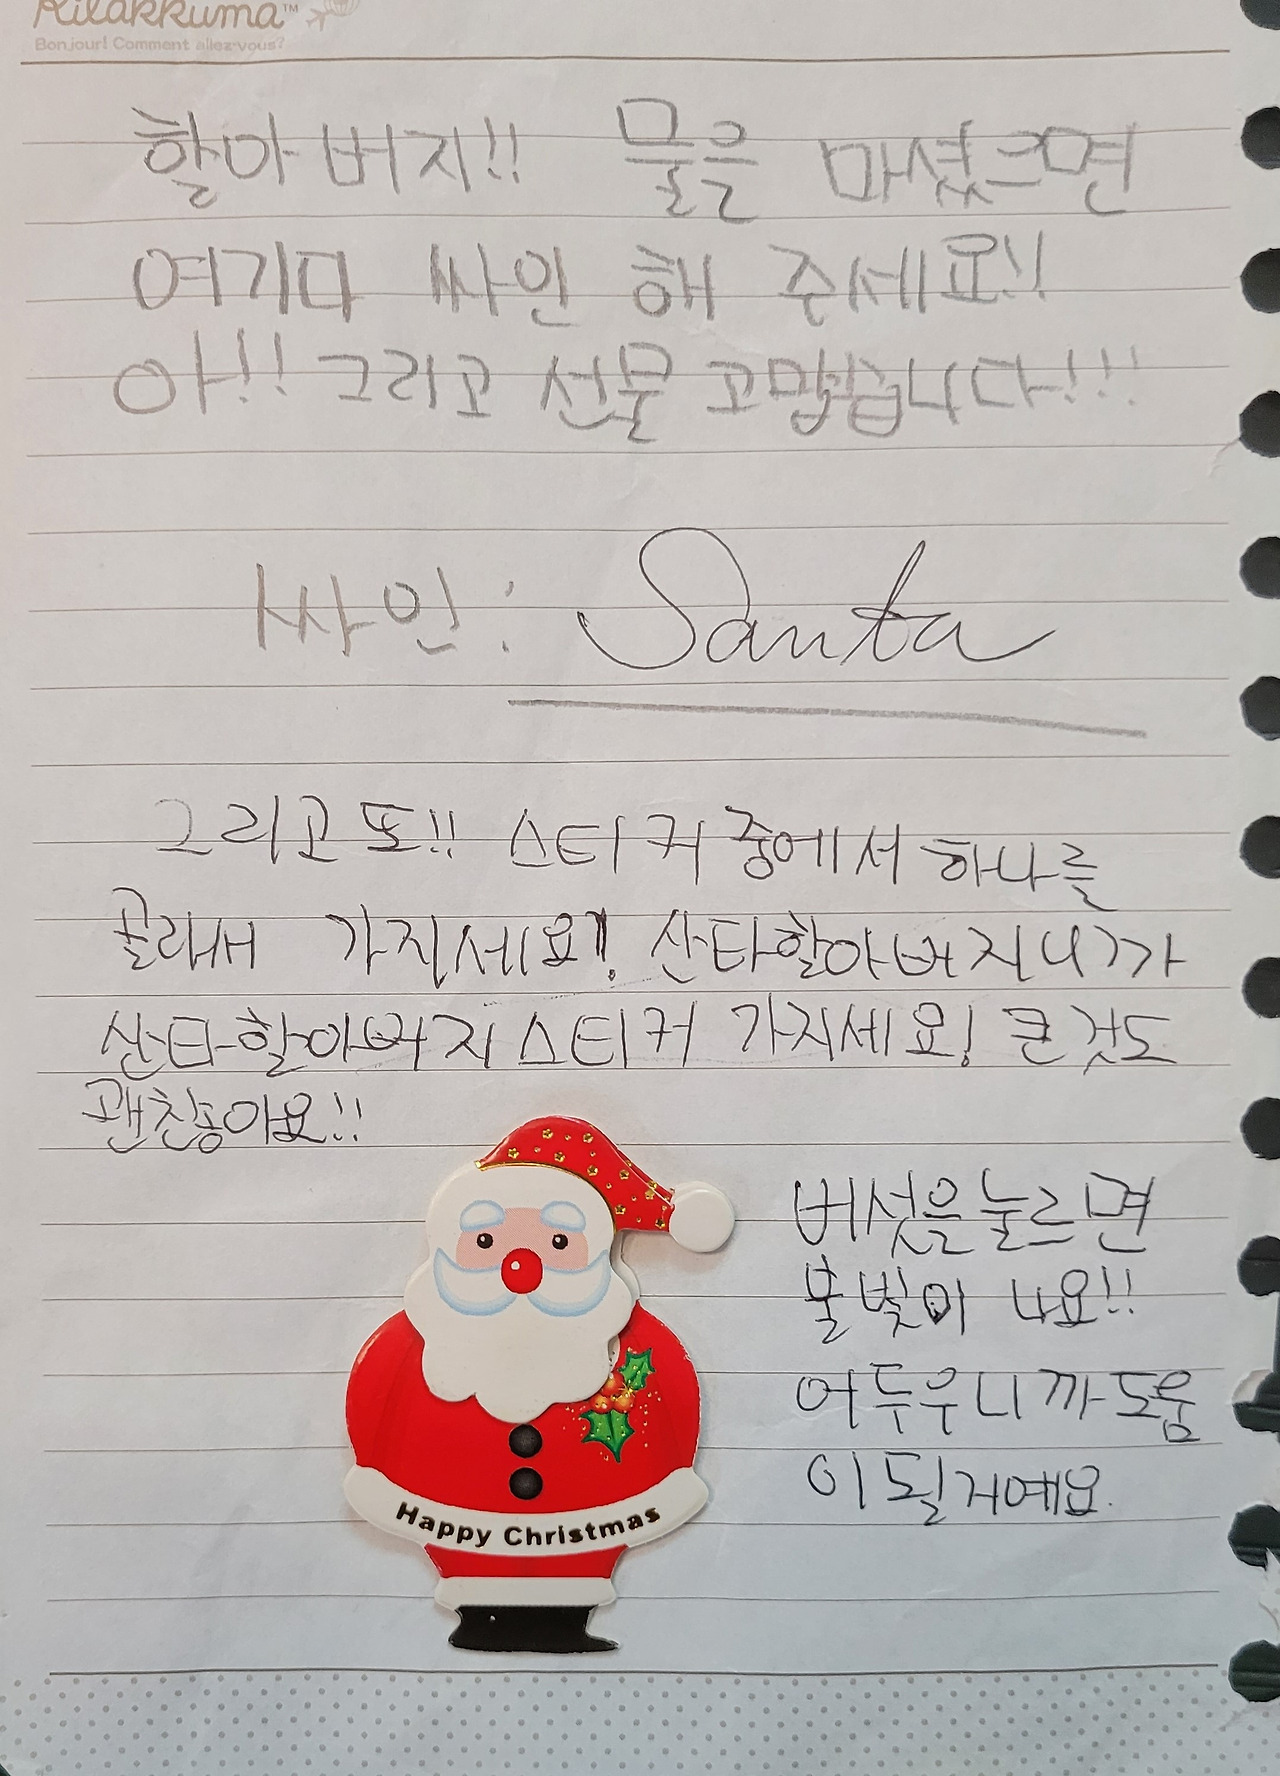 Rilakkuma™
Bonjour! Comment allez-vous?
할아버지!! 물을 마셨으면
여기다 싸인 해 주세요!!
아!! 그리고 선물 고맙습니다!!!
싸인: Santa
그리고 또!! 스티커 중에서 하나를
골라서 가지세요! 산타할아버지니가
산타할아버지스티커 가지세요! 큰것도
괜찮아요!!
버섯을눌르면
불빛이 나요!!
어두우니까 도움
이 될거예요.
Happy Christmas